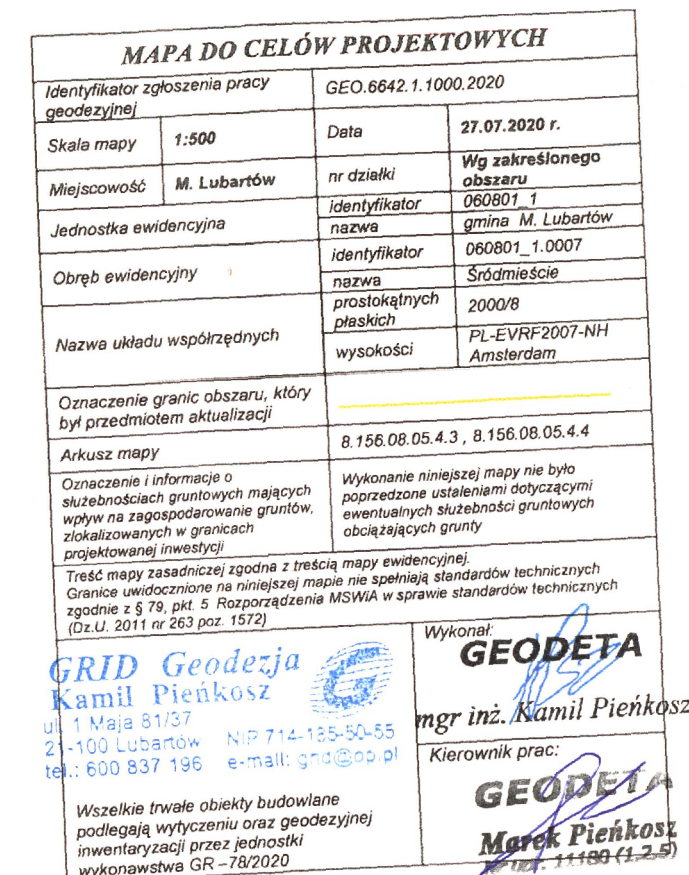 MAPA DO CELÓW PROJEKTOWYCH
Identyfikator zgłoszenia pracy
geodezyjnej
GEO.6642.1.1000.2020
Skala mapy
1:500
Data
27.07.2020 r.
Miejscowość
M. Lubartów
nr działki
Wg zakreślonego
obszaru
Jednostka ewidencyjna
identyfikator
060801_1
nazwa
gmina M. Lubartów
Obręb ewidencyjny
identyfikator
060801_1.0007
nazwa
Śródmieście
Nazwa układu współrzędnych
prostokątnych
płaskich
2000/8
wysokości
PL-EVRF2007-NH
Amsterdam
Oznaczenie granic obszaru, który
był przedmiotem aktualizacji
Arkusz mapy
8.156.08.05.4.3 , 8.156.08.05.4.4
Oznaczenie i informacje o
służebnościach gruntowych mających
wpływ na zagospodarowanie gruntów,
zlokalizowanych w granicach
projektowanej inwestycji
Wykonanie niniejszej mapy nie było
poprzedzone ustaleniami dotyczącymi
ewentualnych służebności gruntowych
obciążających grunty
Treść mapy zasadniczej zgodna z treścią mapy ewidencyjnej.
Granice uwidocznione na niniejszej mapie nie spełniają standardów technicznych
zgodnie z § 79, pkt. 5 Rozporządzenia MSWiA w sprawie standardów technicznych
(Dz.U. 2011 nr 263 poz. 1572)
GRID Geodezja
Kamil Pieńkosz
ul. 1 Maja 81/37
21-100 Lubartów NIP 714-185-50-55
tel.: 600 837 196 e-mail: grid@op.pl
Wszelkie trwałe obiekty budowlane
podlegają wytyczeniu oraz geodezyjnej
inwentaryzacji przez jednostki
wykonawstwa GR –78/2020
Wykonał:
GEODETA
mgr inż. Kamil Pieńkosz
Kierownik prac:
GEODETA
Marek Pieńkosz
11180 (1,2,5)